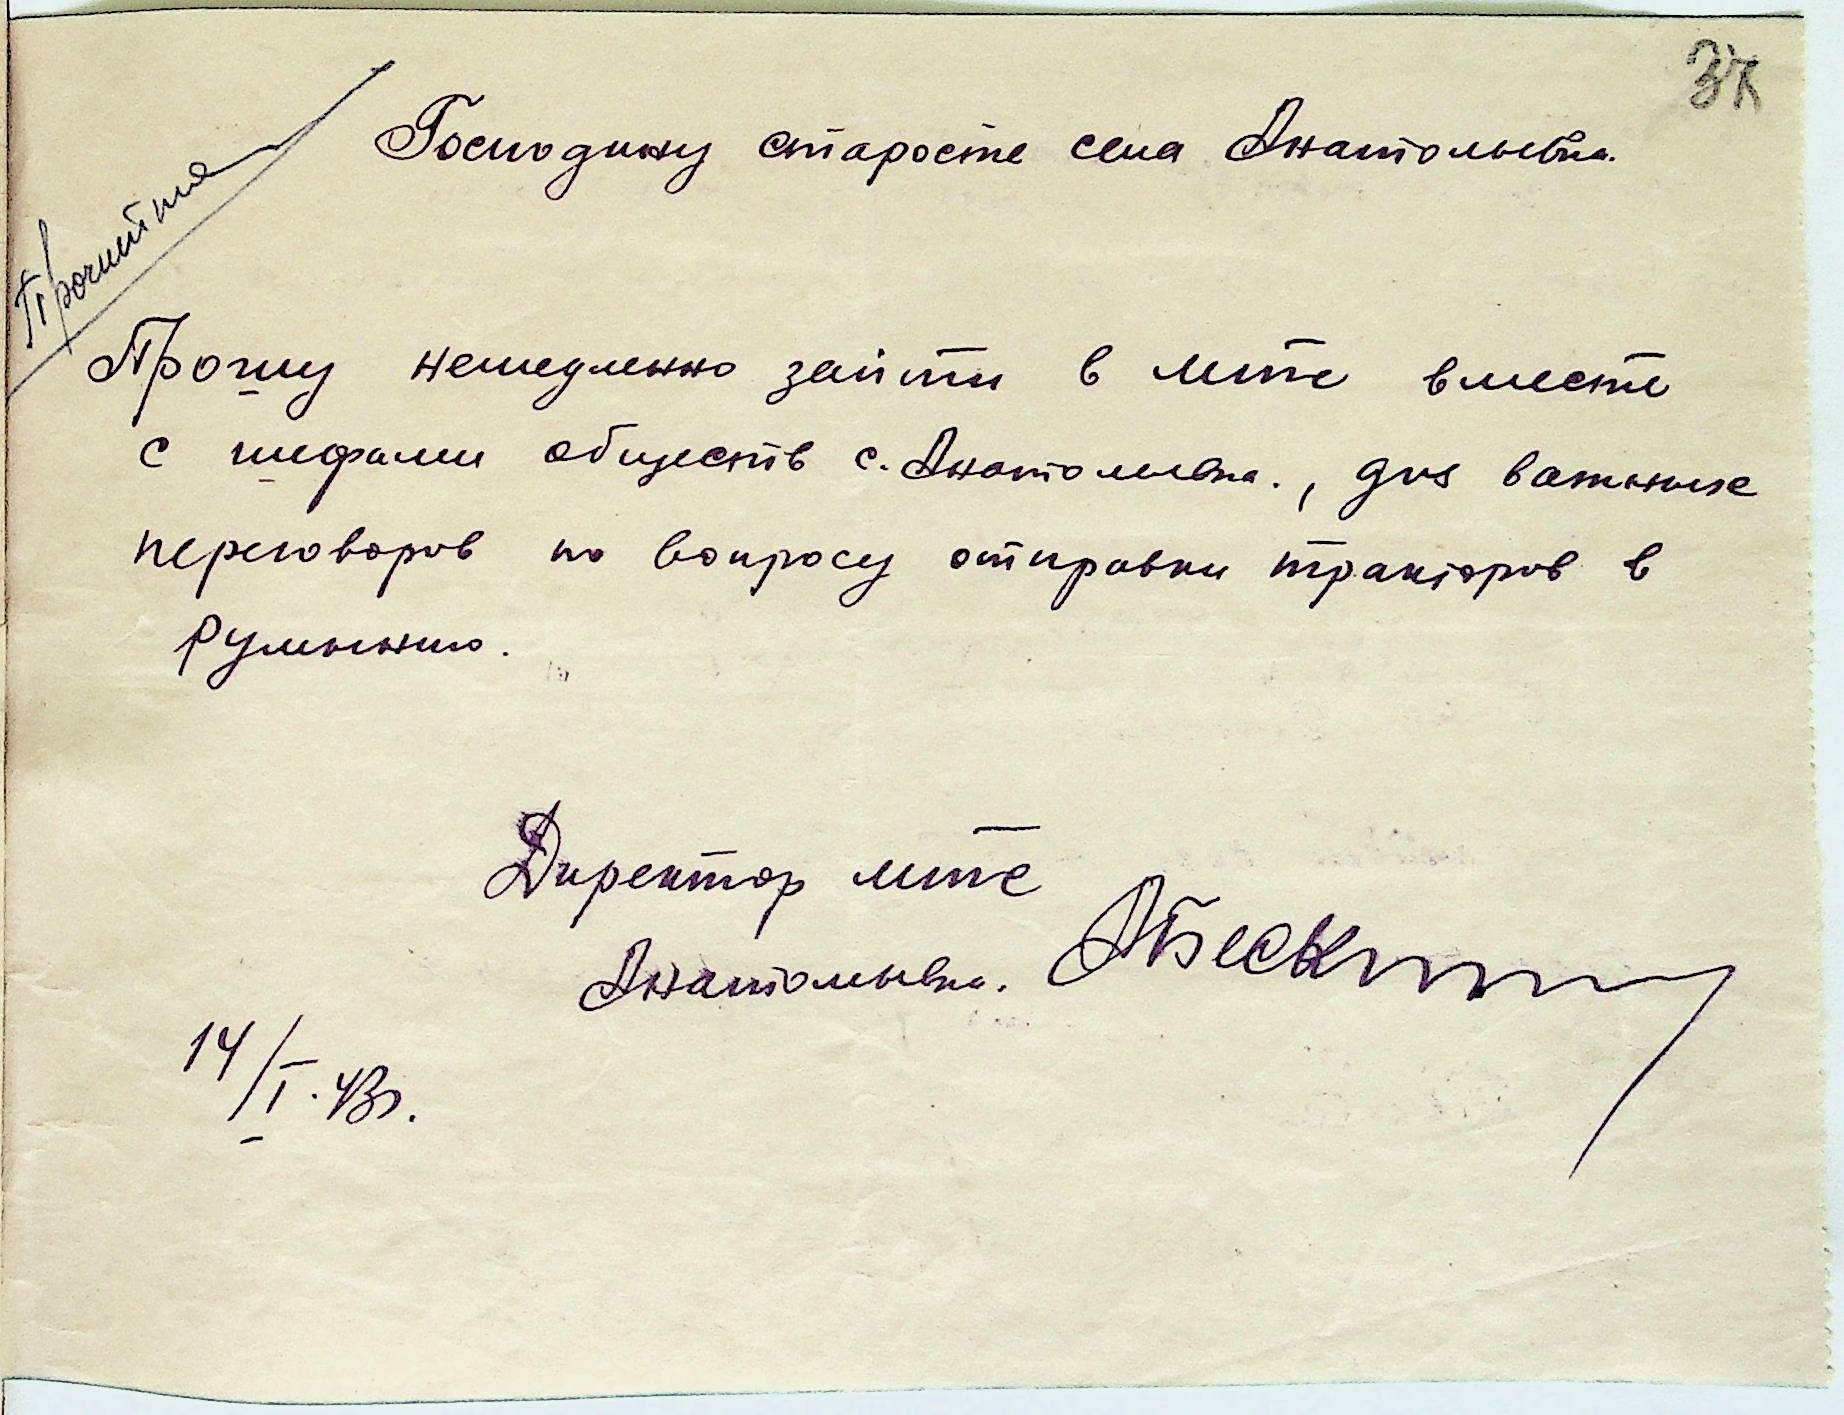 Господину старосте села Анатольевка.
Прошу немедленно зайти в МТС вместе
с шефами обществ с. Анатольевка., для важных
переговоров по вопросу отправки тракторов в
Румынию.
Директор МТС
Анатольевка.
14/I.43г.